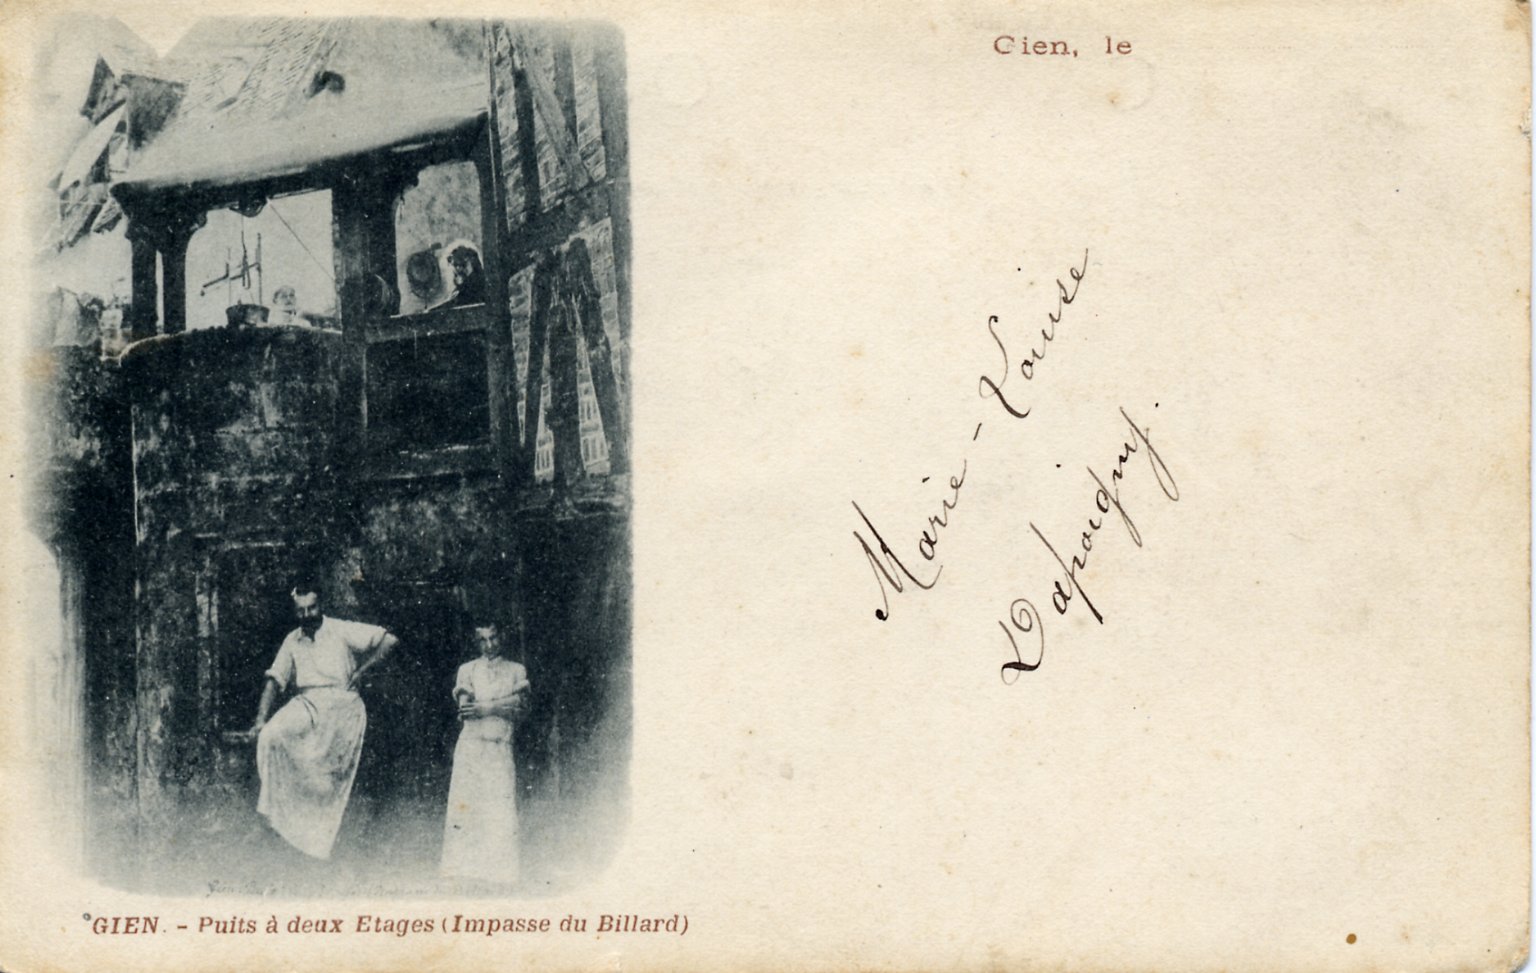 Gien, le
Marie-Louise
Lapoigny.
GIEN. - Puits à deux Etages (Impasse du Billard)